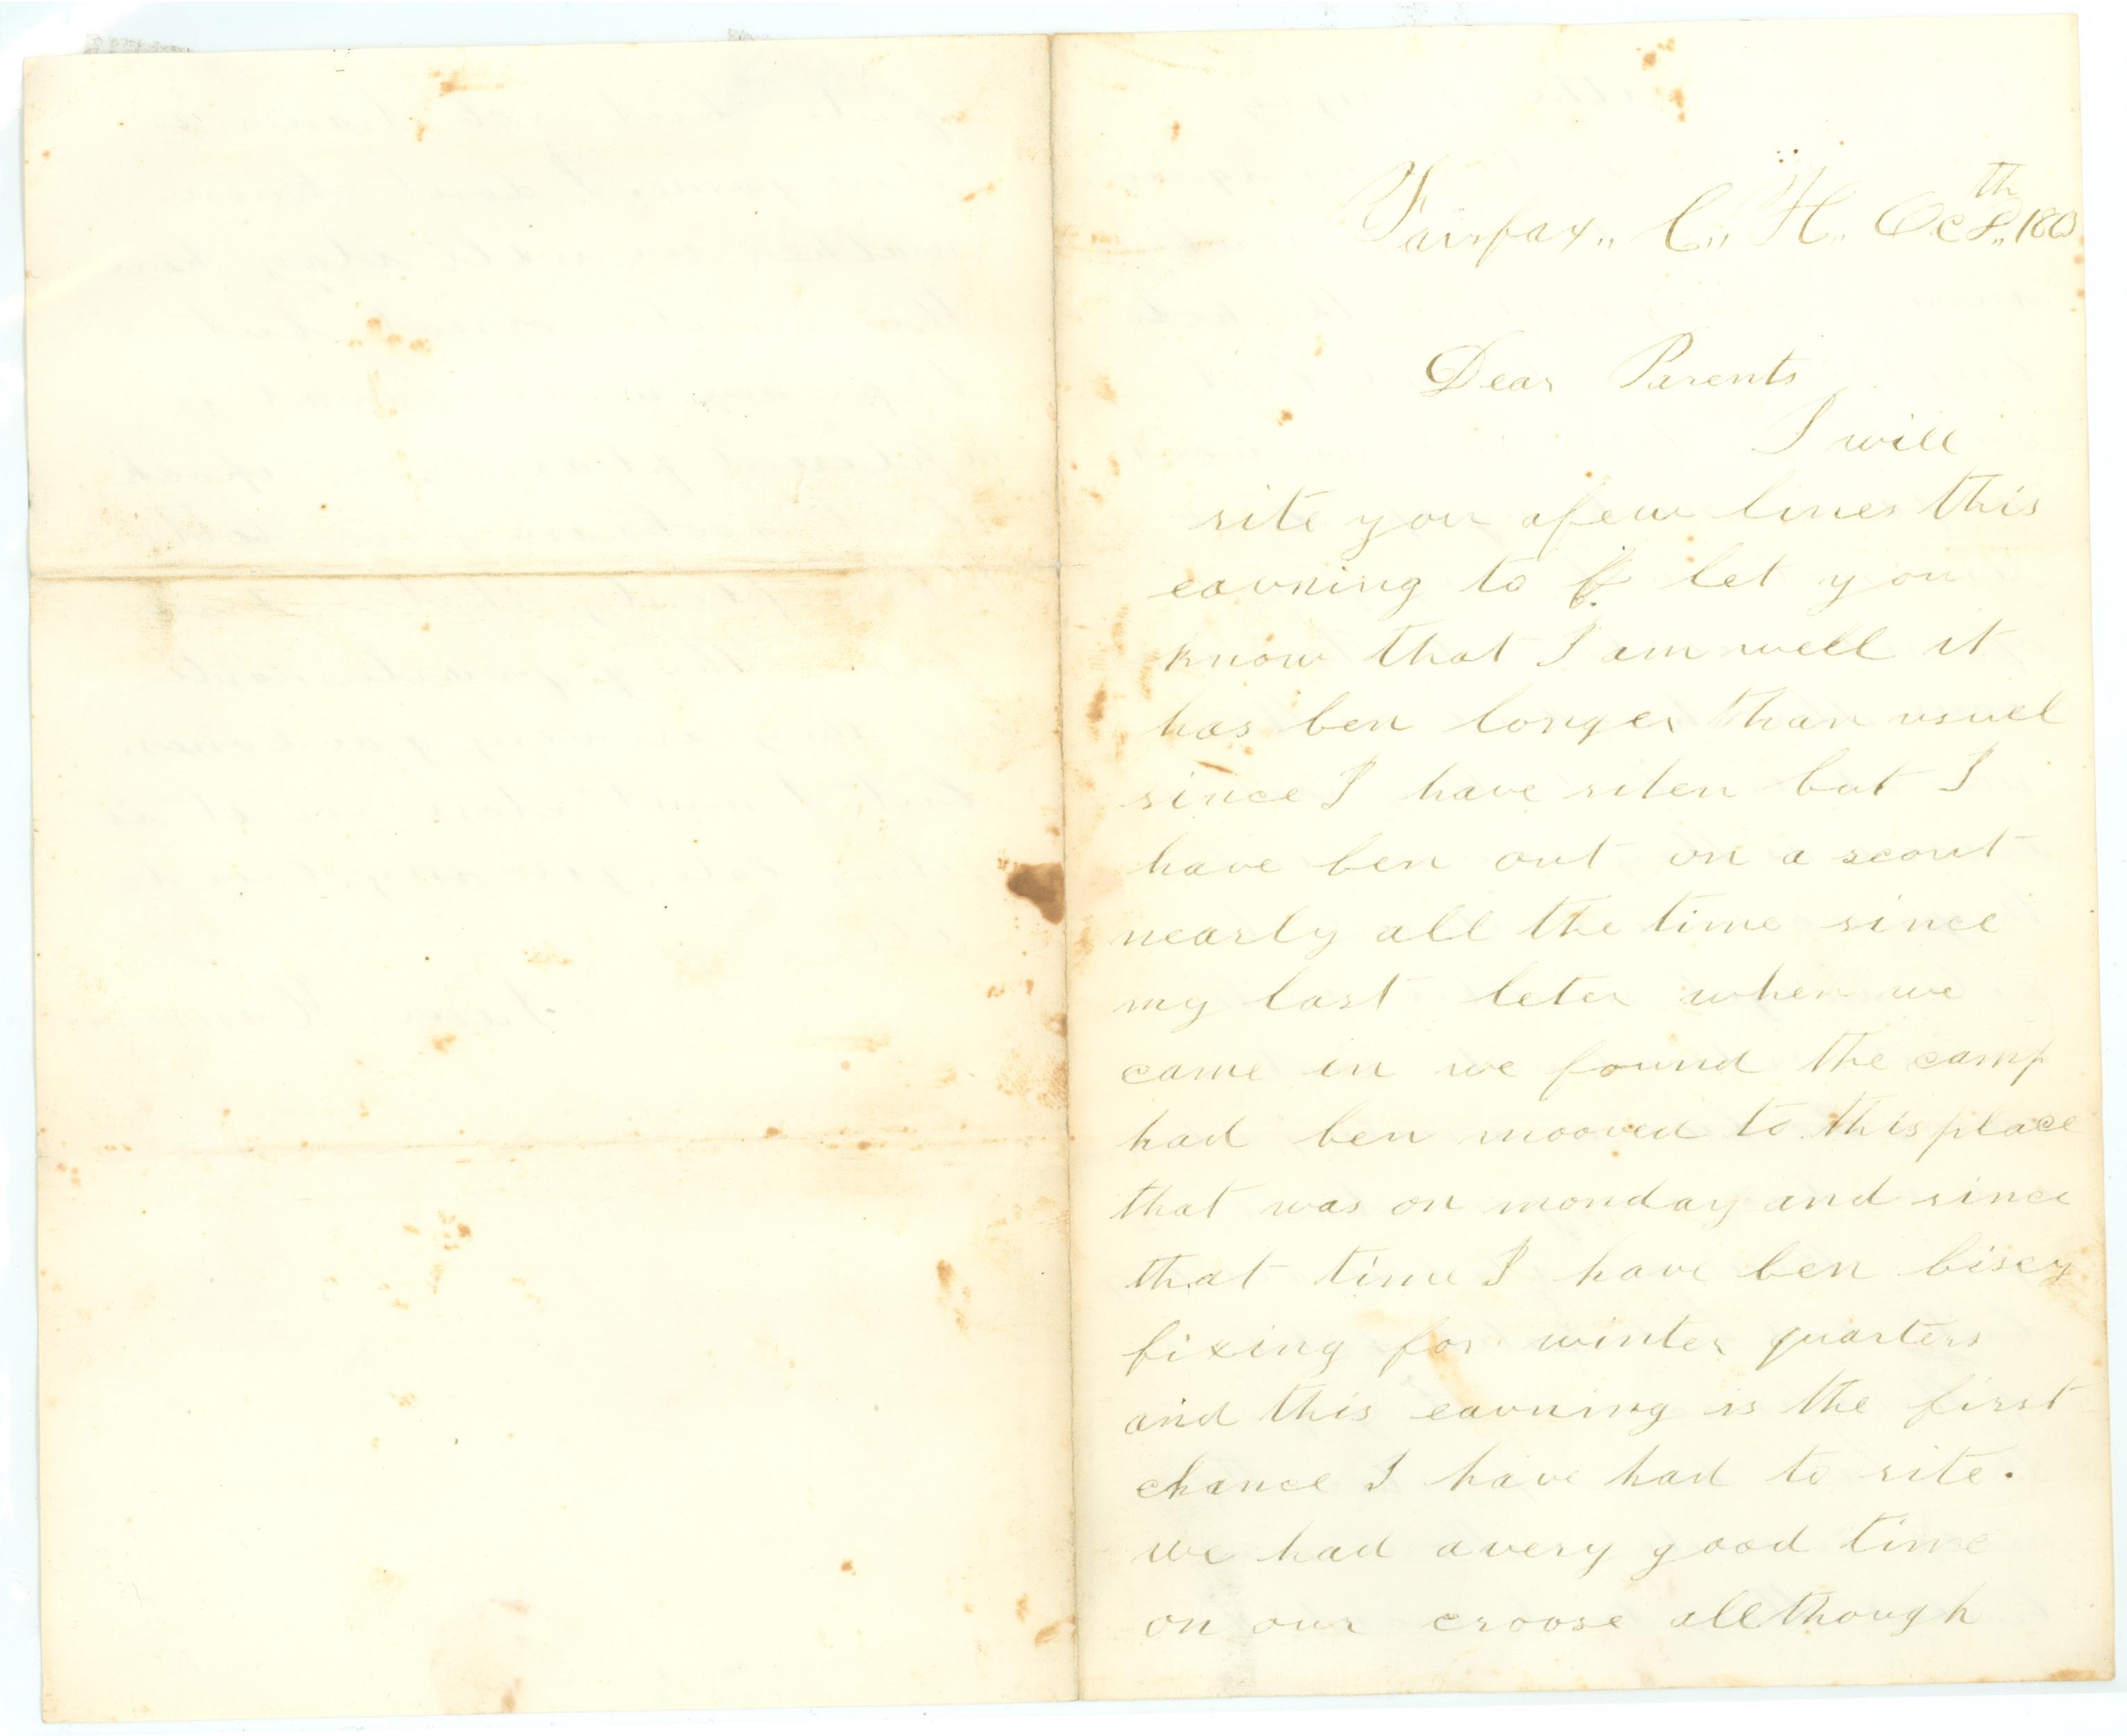 Fairfax,, C,, H,, Oct 8th,, 1863
Dear Parents
I will
rite you afew lines this
eavning to let you
know that I am well it
has ben longer than usuel
since I have riten but I
have ben out on a scout
nearly all the time since
my last leter when we
came in we found the camp
had ben mooved to this place
that was on monday and since
that time I have ben bisey
fixing for winter quarters
and this eavning is the first
chance I have had to rite.
we had avery good time
on our croose allthough